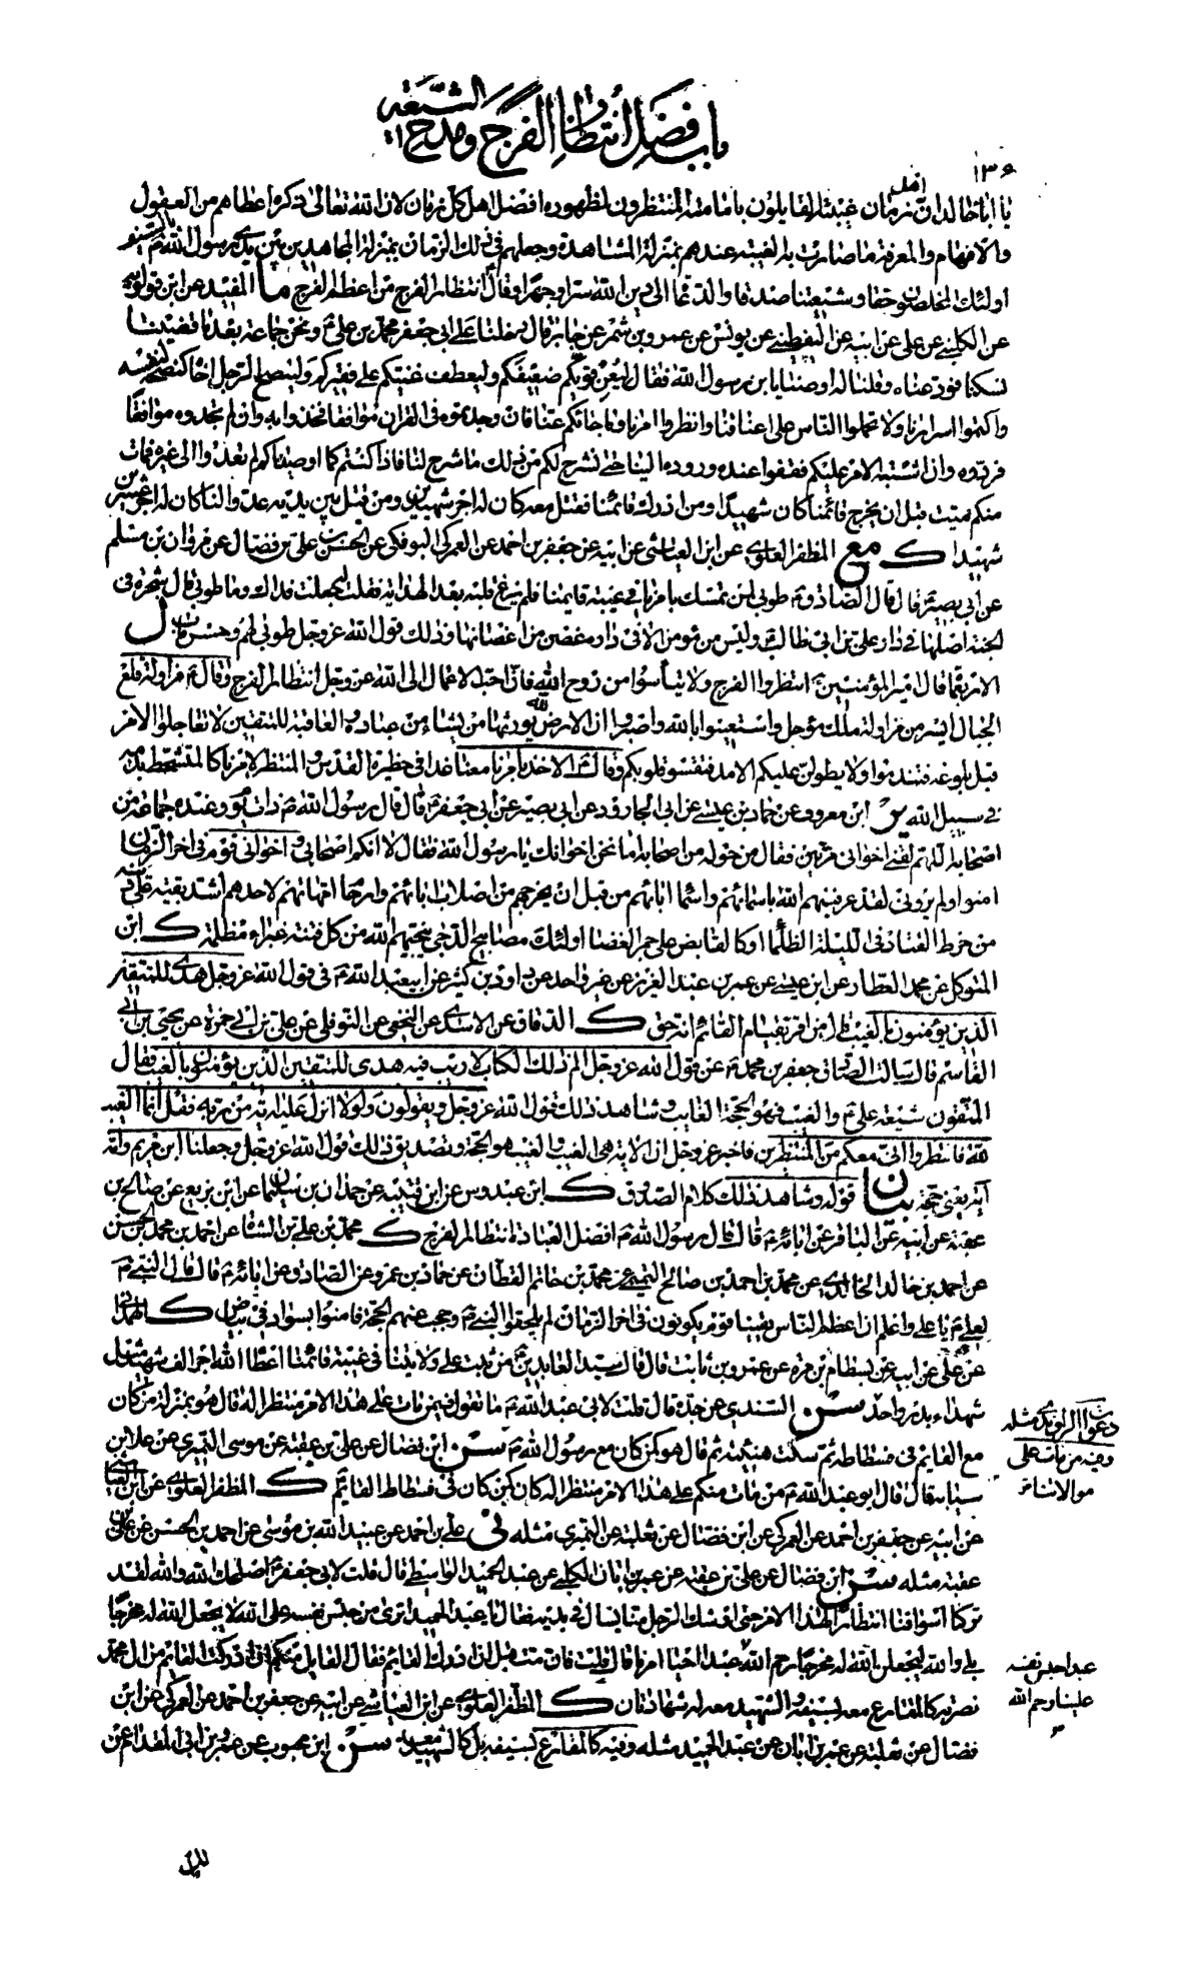 باب فضل انتظار الفرج ومدح الشيعة
١٣٦
يا ابا خالد ان اهل زمان غيبته القايلون بامامته المنتظرون لظهوره افضل اهل كل زمان لان الله تعالى ذكره اعطاهم من العقول
والافهام والمعرفة ما صارت به الغيبة عندهم بمنزلة المشاهدة وجعلهم في ذلك الزمان بمنزلة المجاهدين بين يدي رسول الله ص بالسيف
اولئك المخلصون حقا وشيعتنا صدقا والدعاة الى دين الله سرا وجهرا وقال انتظار الفرج من اعظم الفرج ما المفيد عن ابن قولويه
عن الكليني عن علي عن ابيه عن اليقطيني عن يونس عن عمرو بن شمر عن جابر قال دخلنا على ابي جعفر محمد بن علي ع ونحن جماعة بعد ما قضينا
نسكنا فودعناه وقلنا له اوصنا يا بن رسول الله فقال ليعن قويكم ضعيفكم وليعطف غنيكم على فقيركم ولينصح الرجل اخاه كنصحه لنفسه
واكتموا اسرارنا ولا تحملوا الناس على اعناقنا وانظروا امرنا وما جائكم عنا فان وجدتموه في القران موافقا فخذوا به وان لم تجدوه موافقا
فردوه وان اشتبه الامر عليكم فقفوا عنده وردوه الينا حتى نشرح لكم من ذلك ما شرح لنا فاذا كنتم كما اوصيناكم لم تعدوا الى غيره فمات
منكم ميت قبل ان يخرج قائمنا كان شهيدا ومن ادرك قائمنا فقتل معه كان له اجر شهيدين ومن قتل بين يديه عدوا لنا كان له اجر عشرين
شهيدا ك مع المظفر العلوي عن ابن العياشي عن ابيه عن جعفر بن احمد عن العمركي البوفكي عن الحسن بن علي بن فضال عن مروان بن مسلم
عن ابي بصير قال قال الصادق ع طوبى لمن تمسك بامرنا في غيبة قايمنا فلم يزغ قلبه بعد الهداية فقلت له جعلت فداك وما طوبى قال شجرة في
الجنة اصلها في دار علي بن ابي طالب ع وليس من مؤمن الا في داره غصن من اغصانها وذلك قول الله عز وجل طوبى لهم وحسن ماب ل
الاربعمائة قال امير المؤمنين ع انتظروا الفرج ولا تيأسوا من روح الله فان احب الاعمال الى الله عز وجل انتظار الفرج وقال ع مزاولة قلع
الجبال ايسر من مزاولة ملك مؤجل واستعينوا بالله واصبروا ان الارض لله يورثها من يشاء من عباده والعاقبة للمتقين لا تعاجلوا الامر
قبل بلوغه فتندموا ولا يطولن عليكم الامد فتقسو قلوبكم وقال ع الاخذ بامرنا معنا غدا في حظيرة القدس والمنتظر لامرنا كالمتشحط بدمه
في سبيل الله ير ابن معروف عن حماد بن عيسى عن ابي الجارود عن ابي بصير عن ابي جعفر ع قال قال رسول الله ص ذات يوم وعنده جماعة من
اصحابه اللهم لقني اخواني مرتين فقال من حوله من اصحابه اما نحن اخوانك يا رسول الله فقال لا انكم اصحابي واخواني قوم في اخر الزمان
امنوا ولم يروني لقد عرفنيهم الله باسمائهم واسماء ابائهم من قبل ان يخرجهم من اصلاب ابائهم وارحام امهاتهم لاحدهم اشد بقية على دينه
من خرط القتاد في الليلة الظلماء او كالقابض على جمر الغضا اولئك مصابيح الدجى ينجيهم الله من كل فتنة غبراء مظلمة ك ابن
المتوكل عن محمد العطار عن ابن عيسى عن عمر بن عبد العزيز عن غير واحد عن داود بن كثير عن ابي عبد الله ع في قول الله عز وجل هدى للمتقين
الذين يؤمنون بالغيب قال من اقر بقيام القائم انه حق ك الدقاق عن الاسدي عن النخعي عن النوفلي عن علي بن ابي حمزة عن يحيى بن ابي
القاسم قال سالت الصادق جعفر بن محمد ع عن قول الله عز وجل الم ذلك الكتاب لا ريب فيه هدى للمتقين الذين يؤمنون بالغيب فقال
المتقون شيعة علي ع والغيب فهو الحجة الغايب وشاهد ذلك قول الله عز وجل ويقولون لولا انزل عليه اية من ربه فقل انما الغيب
لله فانتظروا اني معكم من المنتظرين فاخبر عز وجل ان الاية هي الغيب والغيب هو الحجة وتصديق ذلك قول الله عز وجل وجعلنا ابن مريم وامه
آية يعني حجة بيان قوله وشاهد ذلك كلام الصدوق ك ابن عبدوس عن ابن قتيبة عن حمدان بن سليمان عن ابن بزيع عن صالح بن
عقبة عن ابيه عن الباقر عن ابائه ع قال قال رسول الله ص افضل العبادة انتظار الفرج ك محمد بن علي بن الشاه عن احمد بن محمد بن الحسن
عن احمد بن خالد الخالدي عن محمد بن احمد بن صالح التميمي عن محمد بن حاتم القطان عن حماد بن عمرو عن الصادق عن ابائه ع قال قال النبي ص
لعلي ع يا علي واعلم ان اعظم الناس يقينا قوم يكونون في اخر الزمان لم يلحقوا النبي ص وحجب عنهم الحجة فامنوا بسواد في بياض ك الهمداني
عن علي عن ابيه عن بسطام بن مرة عن عمرو بن ثابت قال قال سيد العابدين ع من ثبت على ولايتنا في غيبة قائمنا اعطاه الله اجر الف شهيد مثل
شهداء بدر واحد سن السندي عن جده قال قلت لابي عبد الله ع ما تقول فيمن مات على هذا الامر منتظرا له قال هو بمنزلة من كان
مع القايم في فسطاطه ثم سكت هنيئة ثم قال هو كمن كان مع رسول الله ص سن ابن فضال عن علي بن عقبة عن موسى النميري عن علاء بن
سيابة قال قال ابو عبد الله ع من مات منكم على هذا الامر منتظرا له كان كمن كان في فسطاط القايم ع ك المظفر العلوي عن ابن العياشي
عن ابيه عن جعفر بن احمد عن العمركي عن ابن فضال عن ثعلبة عن النميري مثله نى علي بن احمد عن عبيد الله بن موسى عن احمد بن الحسن عن علي بن
عقبة مثله سن ابن فضال عن علي بن عقبة عن عمر بن ابان الكلبي عن عبد الحميد الواسطي قال قلت لابي جعفر ع اصلحك الله والله لقد
تركنا اسواقنا انتظارا لهذا الامر حتى اوشك الرجل منا يسال في يديه فقال يا عبد الحميد اترى من حبس نفسه على الله لا يجعل الله له مخرجا
بلى والله ليجعلن الله له مخرجا رحم الله عبدا احيا امرنا قال قلت فان مت قبل ان ادرك القايم فقال القايل منكم ان ادركت القايم من ال محمد
نصرته كالمقارع معه بسيفه والشهيد معه له شهادتان ك المظفر العلوي عن ابن العياشي عن ابيه عن جعفر بن احمد عن العمركي عن ابن
فضال عن ثعلبة عن عمر بن ابان عن عبد الحميد مثله وفيه كالمقارع بسيفه بل كالشهيد معه سن ابن محبوب عن عمرو بن ابي المقدام عن
دعوات الراوندي مثله
وفيه من مات على
موالاتنا
عبدا حبس نفسه
علينا رحم الله